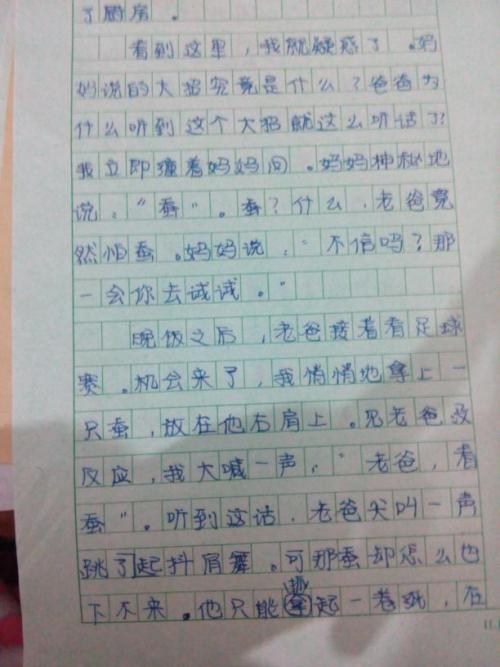 了厨房。
看到这里，我就疑惑了。妈
妈说的大招究竟是什么？爸爸为
什么听到这个大招就这么听话了？
我立即缠着妈妈问。妈妈神秘地
说：“蚕”。蚕？什么，老爸竟
然怕蚕。妈妈说：“不信吗？那
一会你去试试。”
晚饭之后，老爸接着看足球
赛。机会来了，我悄悄地拿上一
只蚕，放在他右肩上。见老爸没
反应，我大喊一声：“老爸，看
蚕”。听到这话，老爸尖叫一声
跳了起抖肩舞。可那蚕却怎么也
下不来。他只能起一卷纸，在